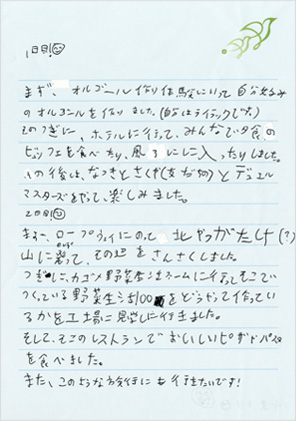 1日目!
まず、オルゴール作り体験にいって自分好み
のオルゴールを作りました。(自分はライラックでした)
そのつぎに、ホテルに行って、みんなで夕食の
ビュッフェを食べたり、風呂に入ったりしました。
その後は、なつきとさくぱ(友が切)とデュエル
マスターズをやって、楽しみました。
2日目
まず、ロープウェイにのって、北やつがたけ(?)
山に登って、その辺をさんさくしました。
つぎに、カゴメ野菜生活ファームに行ってそこで
つくっている野菜生活100をどうやって作ってい
るかを工場に見学しに行きました。
そして、そこのレストランでおいしいピザやパスタ
を食べました。
また、このような旅行にも行きたいです!